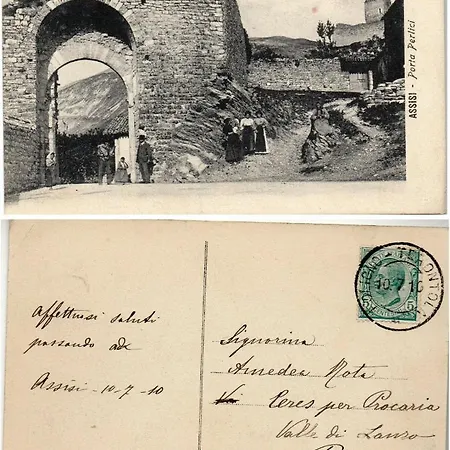 ASSISI - Porta Perlici
Affettuosi saluti
passando
Assisi - 10-7-10
Signorina
Amedea Nota
Ceres per Procaria
Valle di Lanzo
10·7·10